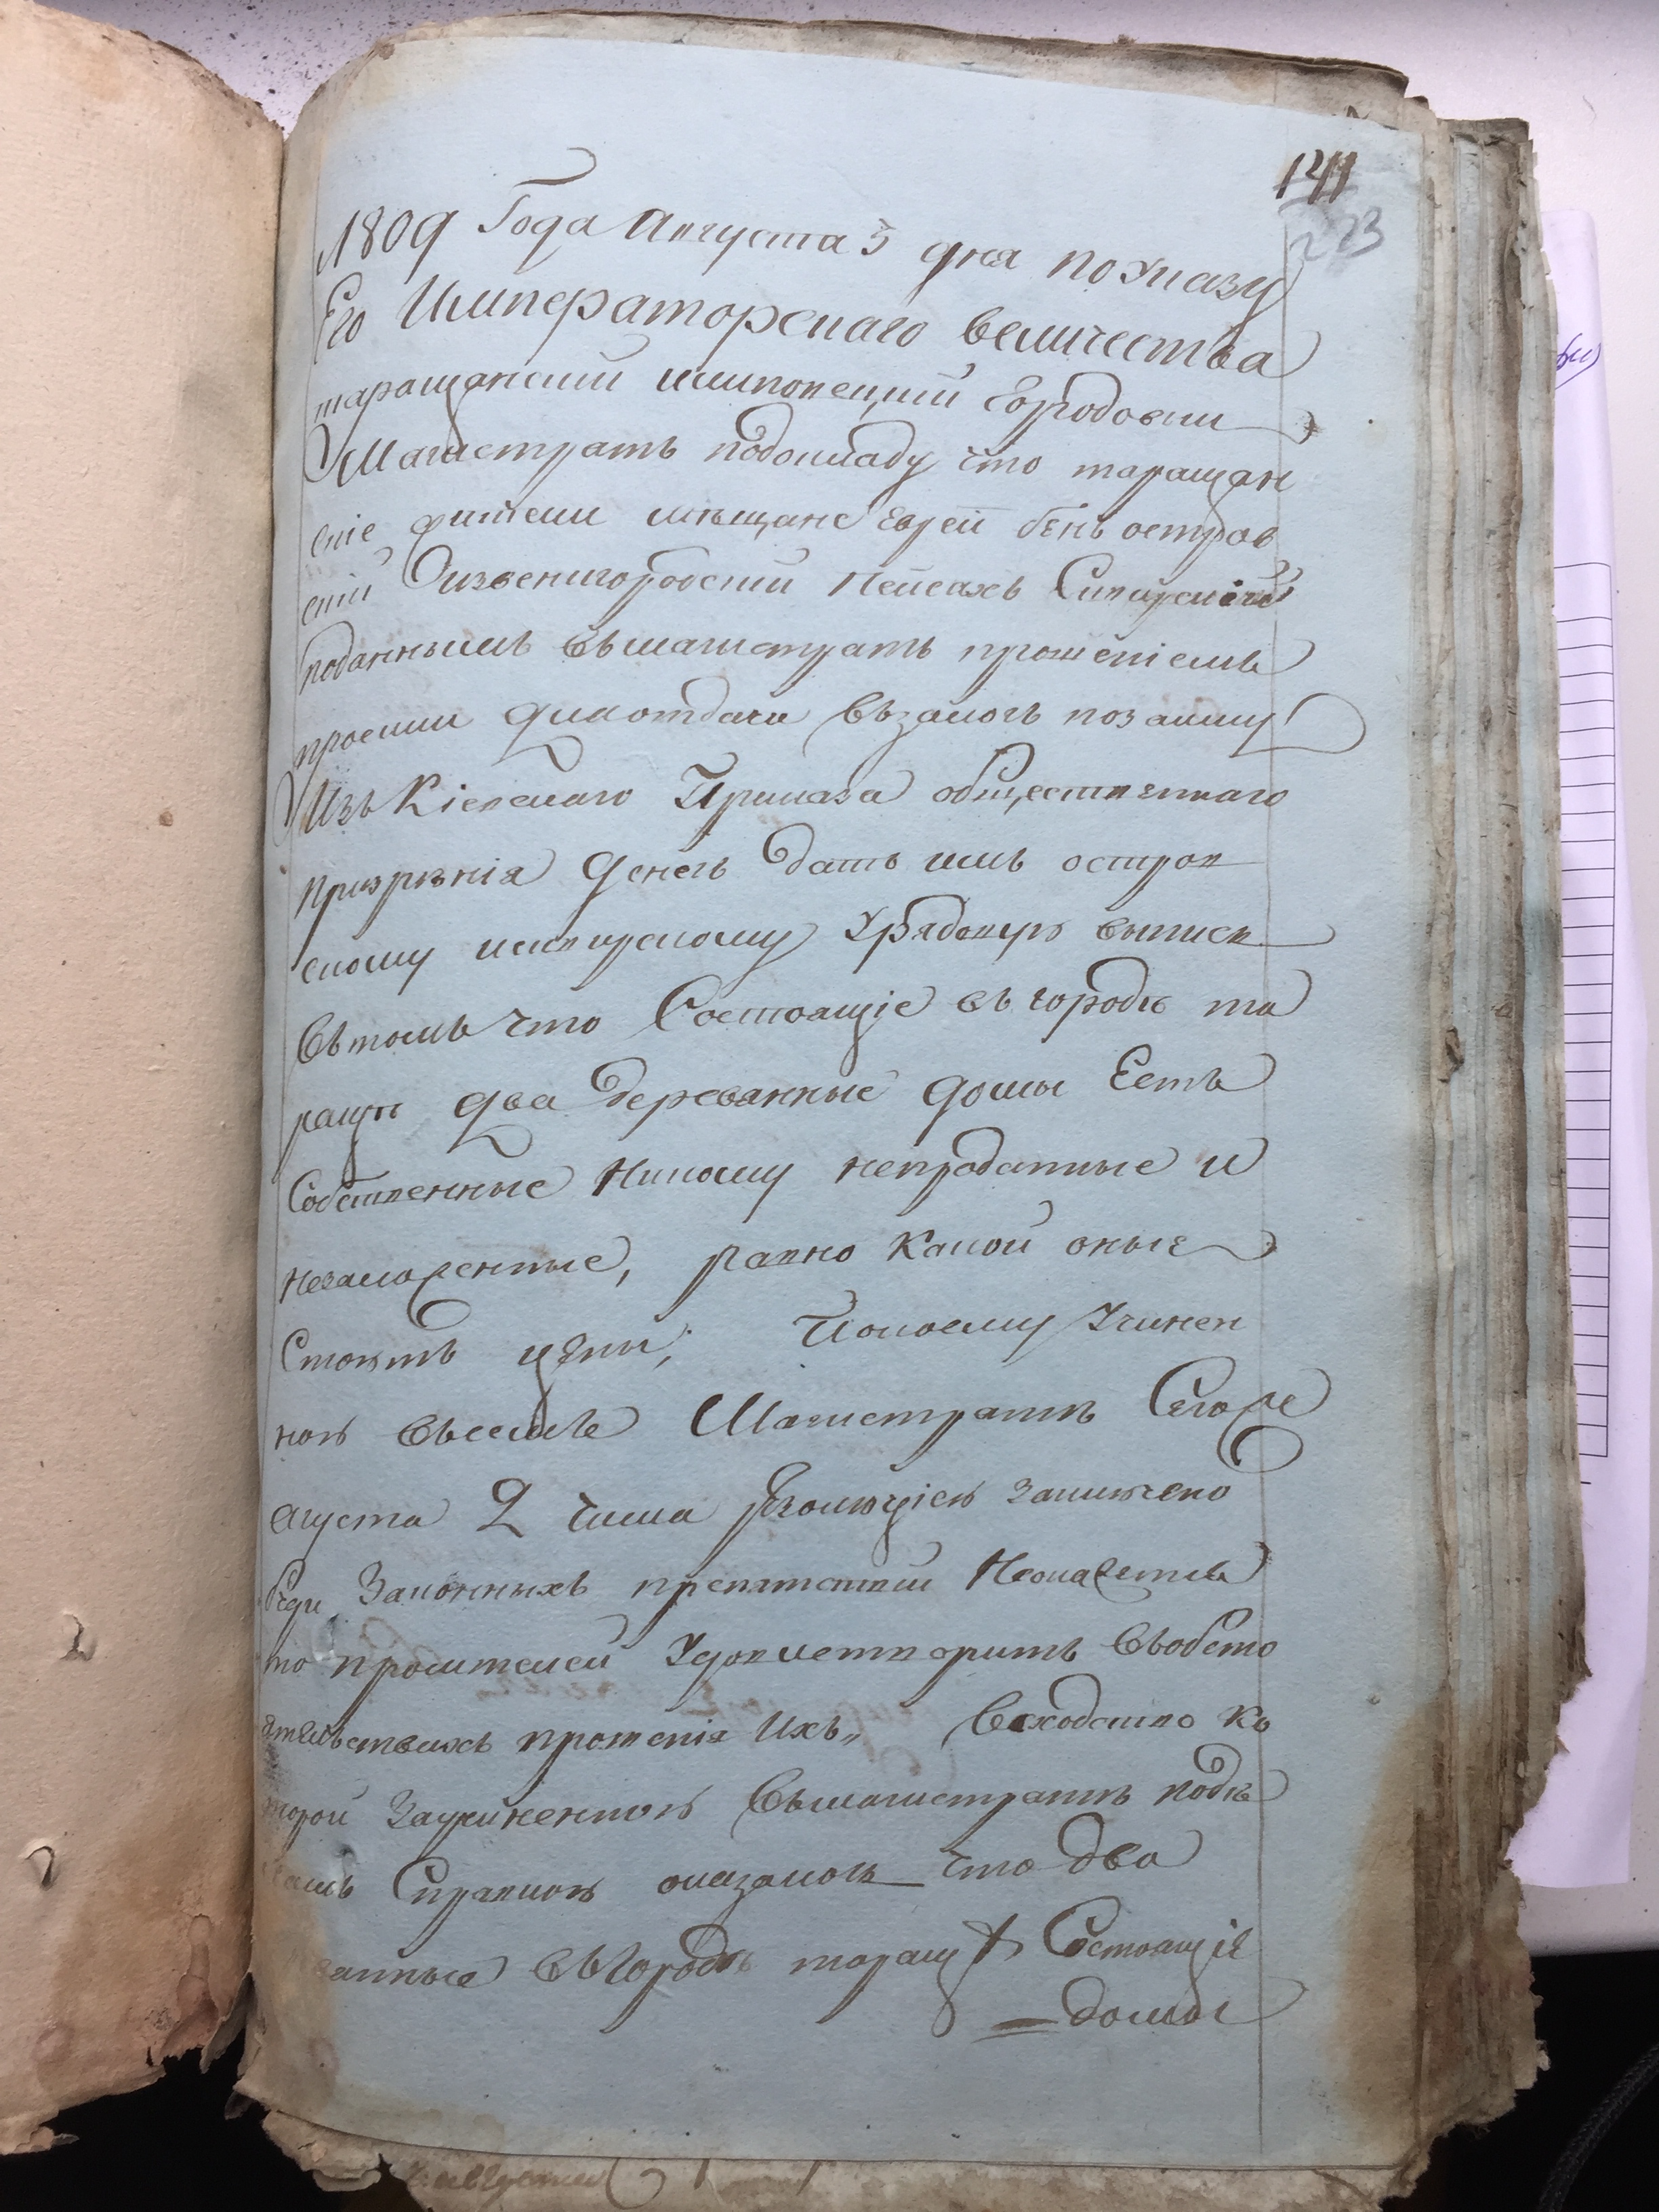 141
223
1809 Года Августа 5 дня по Указу
Его Императорскаго величества
таращанский шляпецкий Городовый
Магистратъ по докладу что таращан
скіе жители мещане Еврей бень остров
ский Звенигородский Пейсахъ
поданнымъ въ магистратъ прошеніемъ
просили для отдачи въ залогъ по займу
Изъ Кіевскаго Приказа общественнаго
призрѣнія денегъ дать имъ остров
скому Урядовую выпись
въ томъ что Состоящіе въ городѣ та
ращѣ два деревянные домы Есть
Собственные Никому непроданные и
незаложенные, равно какой оные
стоятъ цены; По коему Учинен
ною въ семъ Магистратѣ Сегоже
августа 2 числа резолюціею заключено
буде Законныхъ препятствий Неокажется
то просителей Удовлетворить въ обсто
ятельствахъ прошенія Ихъ„ Всходство ко
торой Зачиненною въ магистратѣ подѣ
ламъ Справкою оказалось что два
въ Городѣ таращѣ Состоящіе
домы